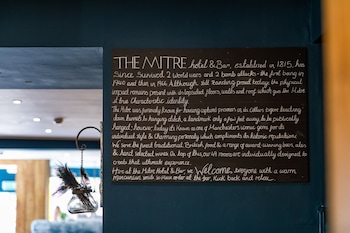 THE MITRE hotel & Bar, established in 1815, has
Since survived 2 world wars and 2 bomb attacks - the first being in
1940 and then in 1996. Although still standing proud today the physical
impact remains present with its lopsided floors, walls and roof which give the Mitre
it true characteristic identity.
The Mitre was famously known for having captured prisoners in its cellars
down to hanging ditch, a landmark only a few feet away, to be publically
hanged; however today its known as one of Manchesters iconic gems for its
individual style & charming personality which compliments its historic reputation!
We serve the finest traditional British food & a range of award-winning beers, ales
& hand selected wines. On top of this, our 40 rooms are individually designed to
create that ultimate experience.
Here at the Mitre Hotel & Bar, we Welcome everyone with a warm
Mancunian smile so order at the bar, kick back and relax...